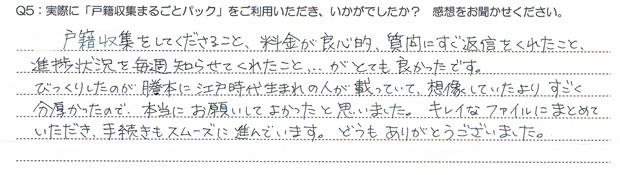 Q5：実際に「戸籍収集まるごとパック」をご利用いただき、いかがでしたか？ 感想をお聞かせください。
戸籍収集をしてくださること、料金が良心的、質問にすぐ返信をくれたこと、
進捗状況を毎週知らせてくれたこと、…がとても良かったです。
びっくりしたのが謄本に江戸時代生まれの人が載っていて、想像していたよりすごく
分厚かったので、本当にお願いしてよかったと思いました。キレイなファイルにまとめて
いただき、手続きもスムーズに進んでいます。どうもありがとうございました。